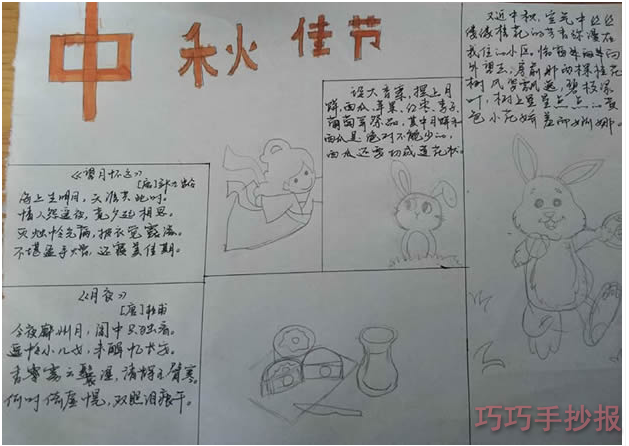 中秋佳节
又近中秋,空气中丝丝
缕缕桂花的芳香弥漫在
我住的小区,
外望去,房前那两棵桂花
树风
叶,树上星星点点的
色小花
设大香案,摆上月
饼、西瓜、苹果、红枣、李子、
葡萄等祭品,其中月饼和
西瓜是绝对不能少的,
西瓜还要切成莲花状。
《望月怀远》
[唐]张九龄
海上生明月,天涯共此时。
情人怨遥夜,竟夕起相思。
灭烛怜光满,披衣觉露滋。
不堪盈手赠,还寝梦佳期。
《月夜》
[唐]杜甫
今夜鄜州月,闺中只独看。
遥怜小儿女,未解忆长安。
香雾云鬟湿,清辉玉臂寒。
何时倚虚幌,双照泪痕干。
巧巧手抄报